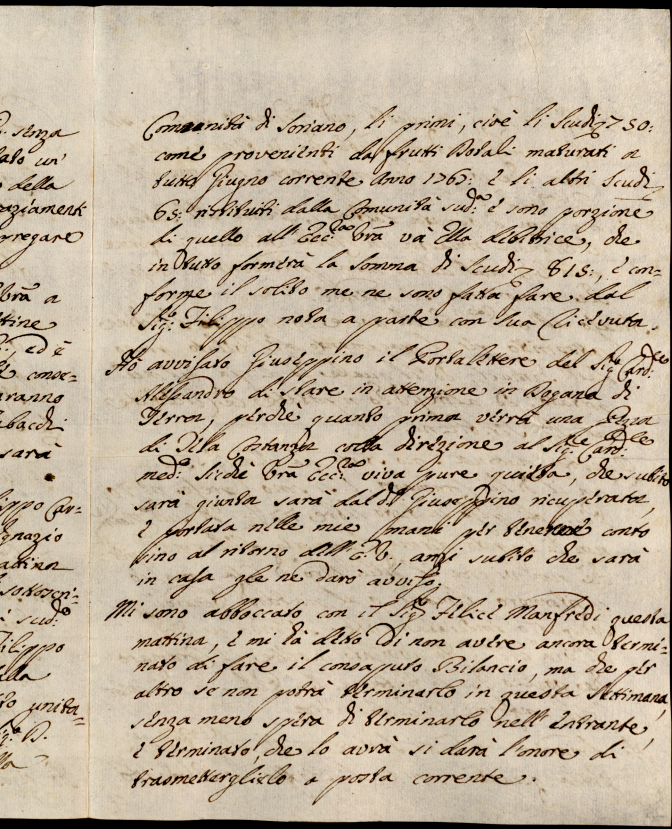 senza
lato un'
della
aziament
pregare
Vrã a
tine
ed è
conse-
aranno
sarà
lippo Car-
gnazio
attina
sottoscri-
sud.º
Filippo
ella
unita-
Comunità di Soriano, li primi, cioè li Scudi 750:
come provenienti da frutti Dotali maturati a
tutto Giugno corrente Anno 1765: e li altri Scudi
65: restituiti dalla Comunità sud.ª e sono porzione
di quello all' Ecc.za Vrã và Ella debitrice, che
in tutto formerà la somma di Scudi 815:, e con-
forme il solito me ne sono fatta fare dal
Sig.r Filippo nota a parte con sua ricevuta.
Hò avvisato Giuseppino il Portalettere del Sig.r Card.le
Alesandro di stare in attenzione in Dogana di
Terra, perchè quanto prima verrà una Pezza
di Tela Costanza colla direzione al Sig.r Card.le
med.º sicchè Vrã Ecc.za viva pure quieta, che subito
sarà giunta sarà dal dº Giuseppino ricuperata,
e portata nelle mie mani per tenerne conto
sino al ritorno dell' E. V., anzi subito che sarà
in casa gle ne darò avviso.
Mi sono abboccato con il Sig.r Felice Manfredi questa
mattina, e mi hà detto di non avere ancora termi-
nato di fare il consaputo Bilancio, ma che per
altro se non potrà terminarlo in questa Settimana,
senza meno spera di terminarlo nell' entrante,
e terminato che lo avrà si darà l'onore di
trasmetterglielo a posta corrente.